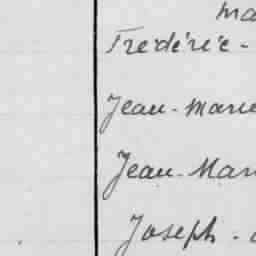 ma
Frédéric -
Jean-Marie
Jean-Mari
Joseph -